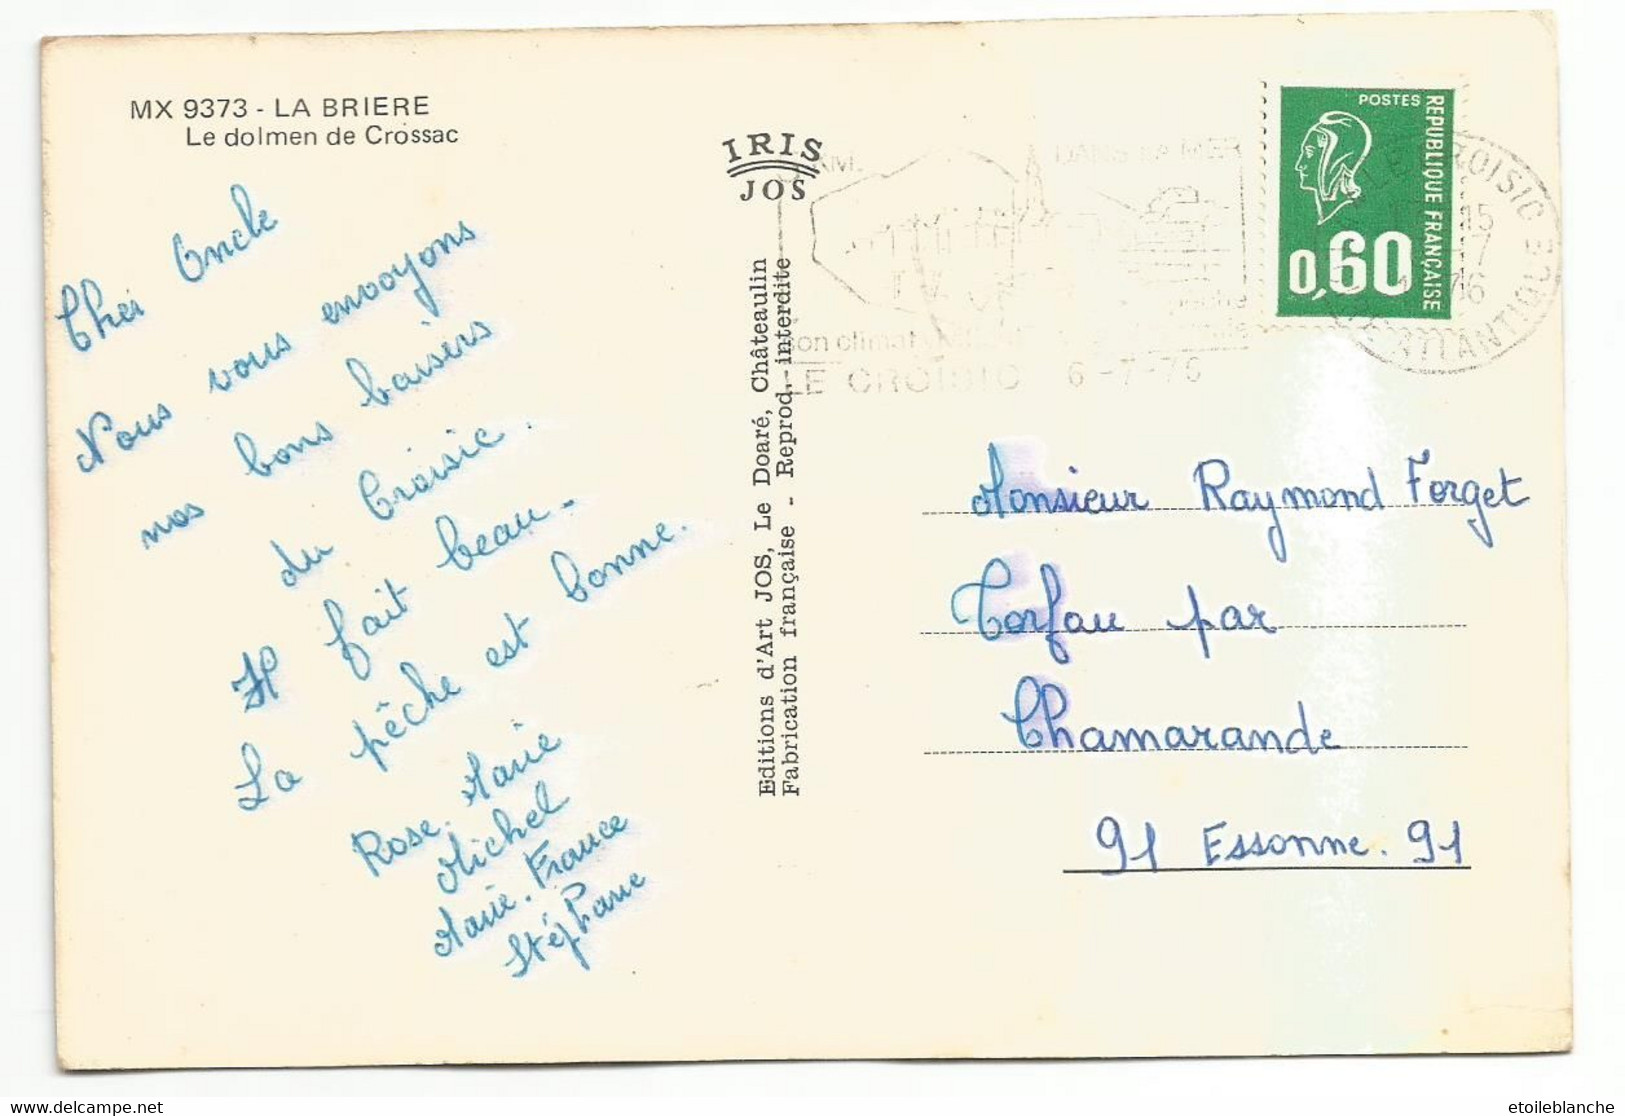 MX 9373 - LA BRIERE
Le dolmen de Crossac
Cher Oncle
Nous vous envoyons
nos bons baisers
du Croisic.
Il fait beau.
La pêche est bonne.
Rose-Marie
Michel
Marie-France
Stéphane
IRIS
JOS
Editions d'Art JOS, Le Doaré, Châteaulin
Fabrication française - Reprod. interdite
KM. DANS LA MER
son climat
LE CROISIC 6-7-76
POSTES
REPUBLIQUE FRANÇAISE
0,60
LE CROISIC
15
7
76
ATLANTIQUE
Monsieur Raymond Forget
Torfou par
Chamarande
91 Essonne. 91
etoileblanche